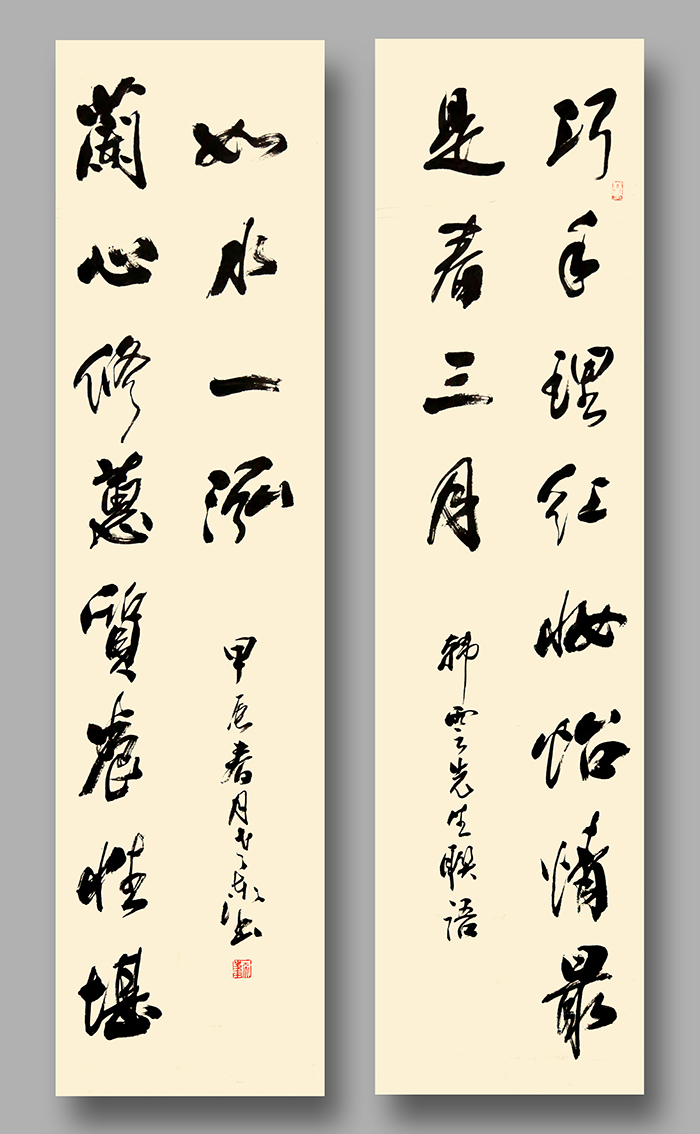 巧手理紅妝怡情最
是春三月
韓雲先生聯語
蘭心修蕙質養性堪
如水一泓
甲辰春月